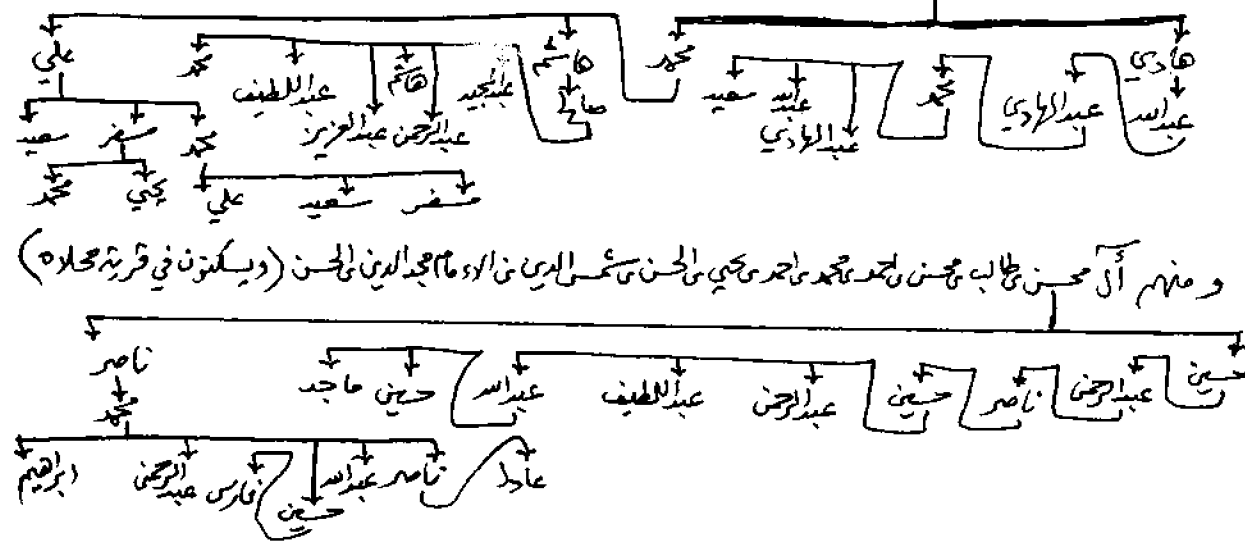 هادي محمد هاشم علي
عبدالله عبدالهادي محمد عبدالهادي عبدالله سعيد صالح عبدالمجيد عبدالرحمن هاشم عبدالعزيز عبداللطيف محمد
محمد مسفر سعيد
مسفر سعيد علي يحيي محمد
و منهم آل محسن بن طالب بن محسن بن احمد بن محمد بن احمد بن يحيي بن الحسن بن شمس الدين بن الامام مجد الدين بن الحسن (ويسكنون في قرية محلاه)
حسين عبدالرحمن ناصر حسين عبدالرحمن عبداللطيف عبدالله حسين ماجد ناصر
محمد
عادل ناصر عبدالله حسين فارس عبدالرحمن ابراهيم